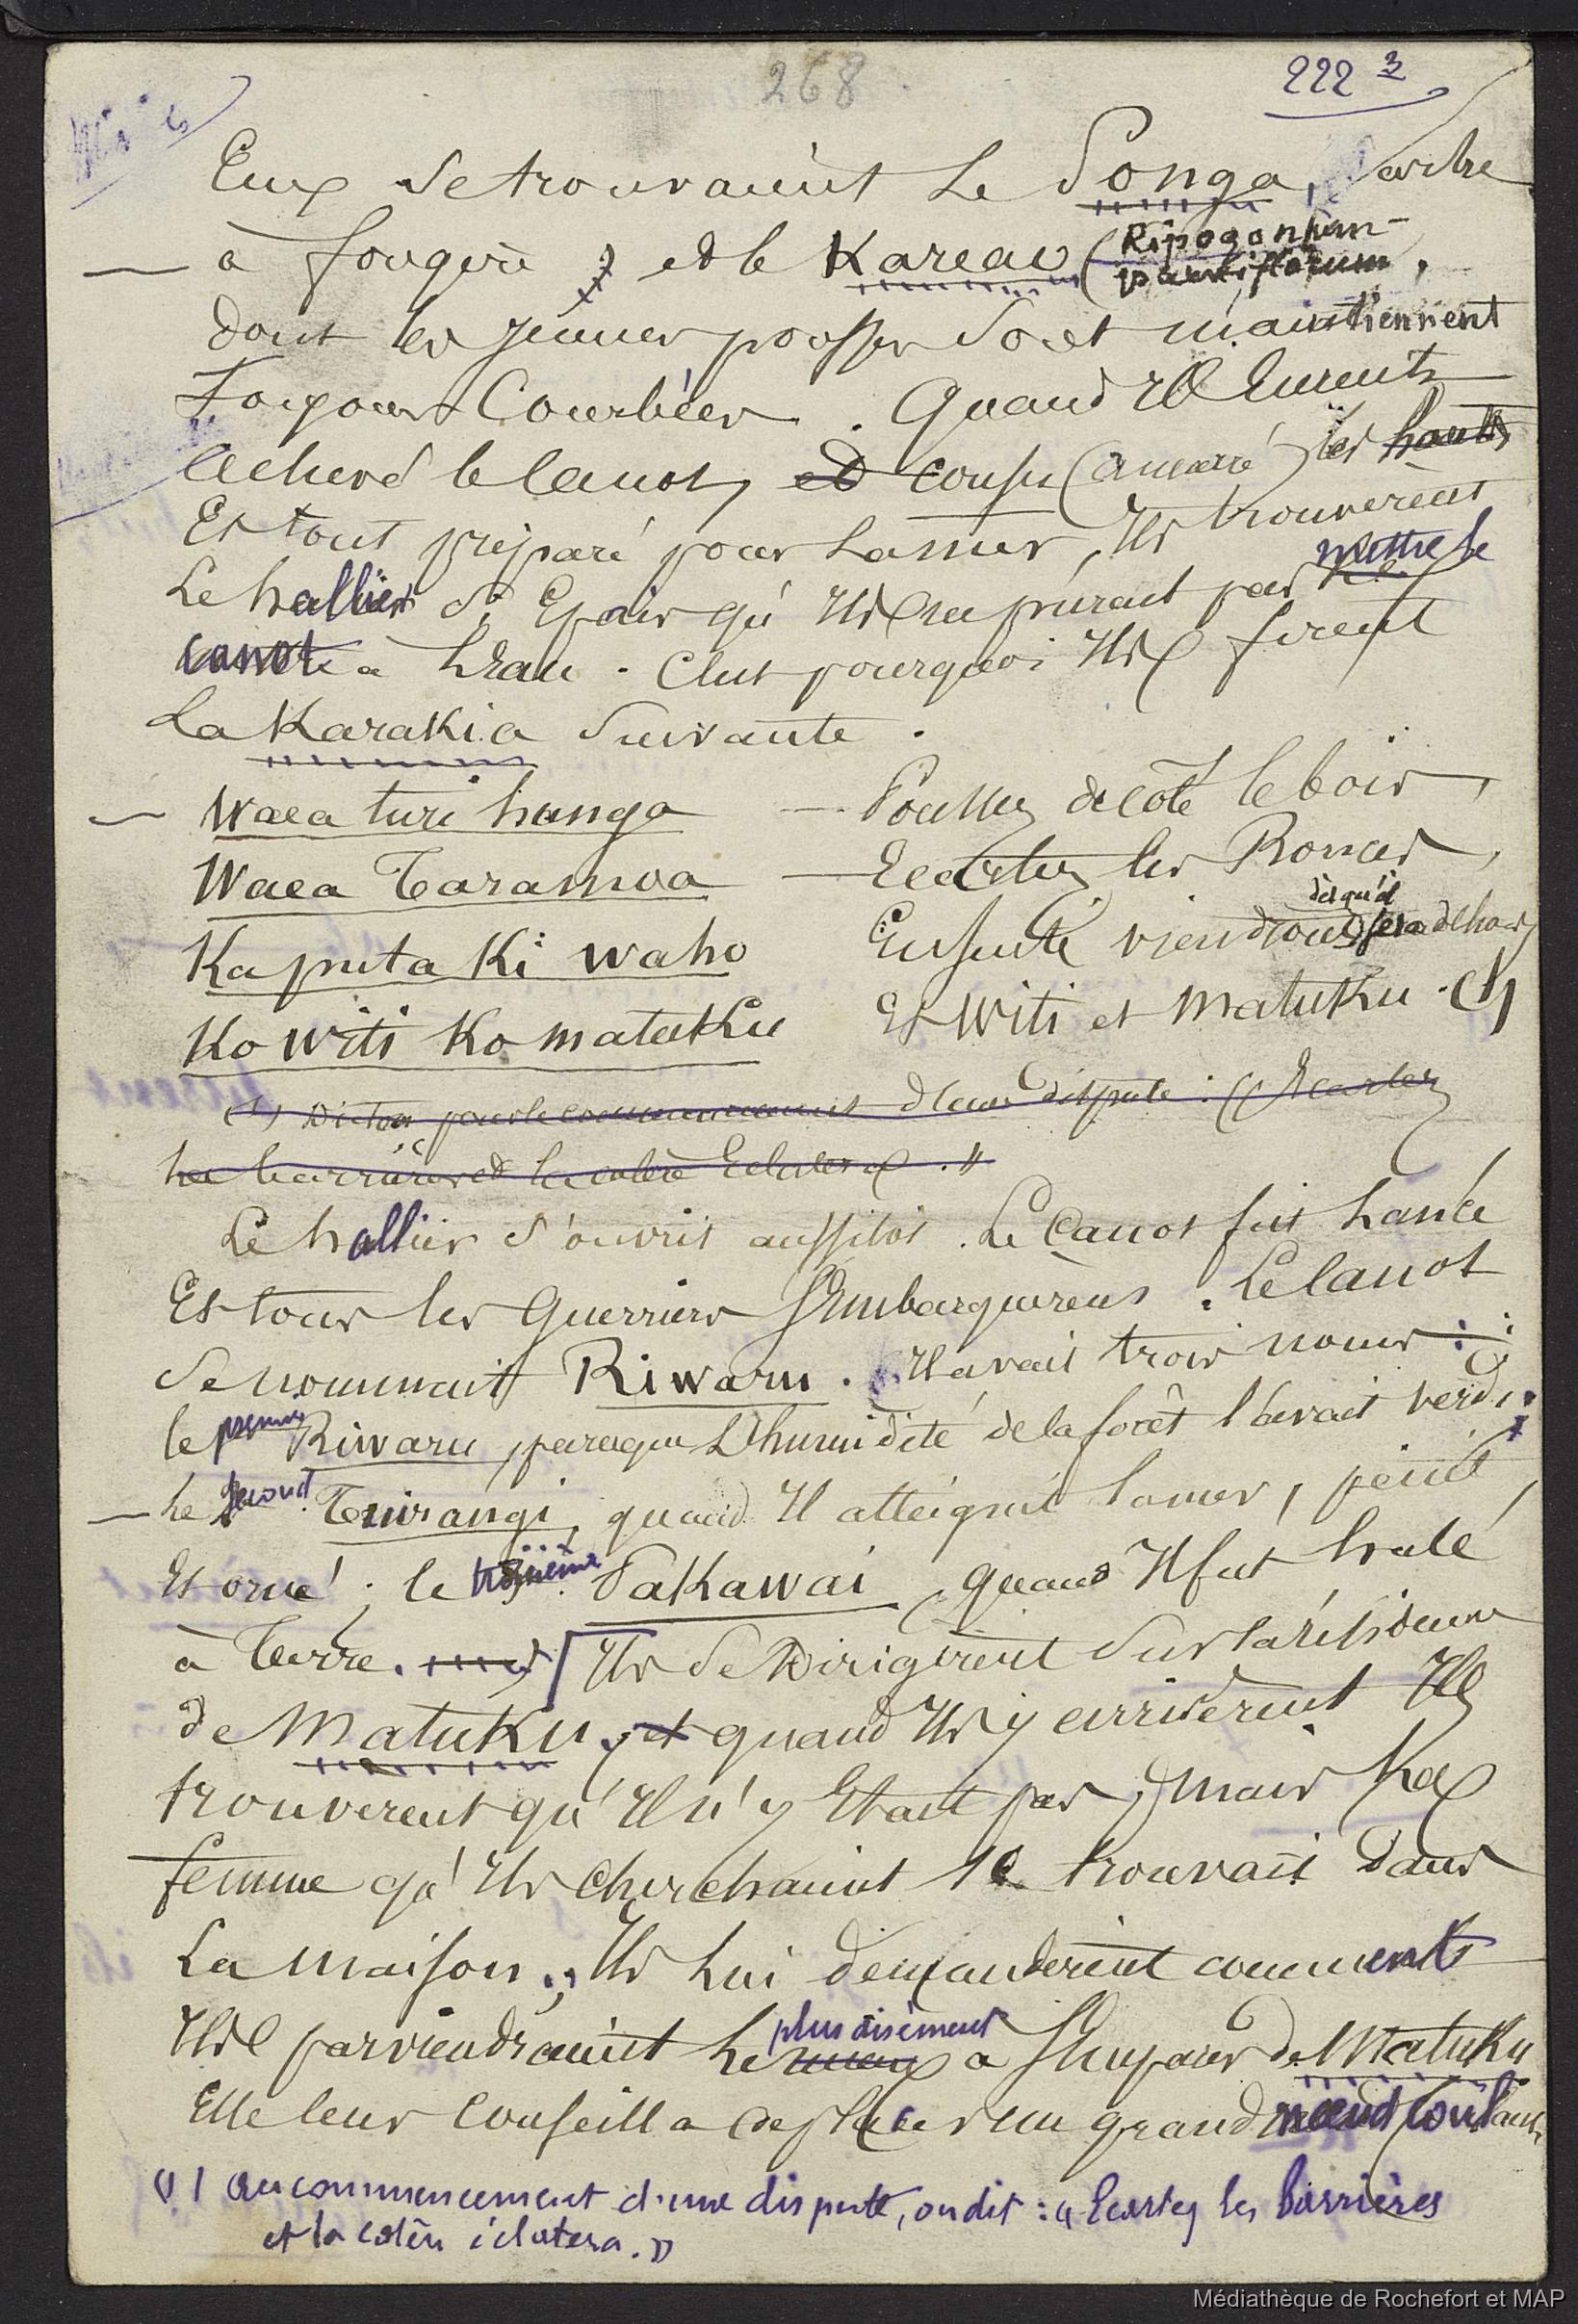 268
222 3
Eux se trouvaient le Ponga, arbre
à fougère et le Kareao (Ripogonhum-
parviflorum,
dont les jeunes pousses se maintiennent
Toujours Courbées. Quand Ils Eurent
achevé le Canot, et cousu (amarré) les hauts
Et tout préparé pour la mer, Ils trouvèrent
Le hallier si Epais qu'Ils ne purent pas mettre le
canot à l'Eau. C'est pourquoi Ils firent
La Karakia Suivante.
Waea turi hunga — Poussez de côté le bois,
Waea Taramoa — Ecartez les Ronces,
Ka puta Ki waho Ensuite viendront dès qu'il sera dehors
Ko Witi Ko Matuku Et Witi et Matuku. (1)
(1) Dicton pour le commencement d'une dispute : (Ecartez
les barrières et la colère Eclatera."
Le hallier s'ouvrit aussitôt. Le Canot fut hanlé
Et tous les Guerriers s'Embarquèrent. Le Canot
se nommait Riwaru. Il avait trois noms :
le premier Riwaru, parce que L'humidité de la forêt l'avait verdi;
le second Tuirangi, quand Il atteignit la mer, peint,
Et orné; le troisième Pakawai, quand Il fut halé
à Terre. Ils se Dirigèrent sur la résidence
de Matuku, et quand Ils y arrivèrent Ils
trouvèrent qu'Il n'y Etait pas, mais la
femme qu'Ils cherchaient se trouvait dans
La maison; Ils lui demandèrent comment
Ils parviendraient le mieux plus aisément à s'Emparer de Matuku
Elle leur Conseilla de placer un grand nœud coulant
(1) Au commencement d'une dispute, on dit : « Ecartez les barrières
et la colère éclatera. »
Médiathèque de Rochefort et MAP